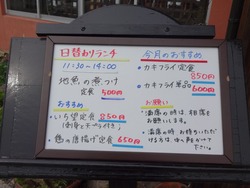 日替わりランチ
11:30～14:00
地魚の煮つけ
定食 500円
おすすめ
・いち望定食 850円
(刺身と天プラ付き)
・鶏の唐揚げ定食 650円
今月のおすすめ
・カキフライ定食
850円
・カキフライ単品
600円
お願い
・満席の時は、相席を
お願いします。
・満席の時、お待ちいただ
ける方は、
下さい。